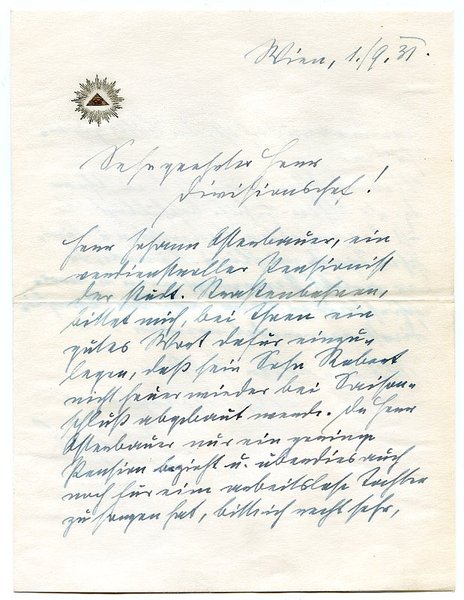 Wien, 1./9. 31.
Sehr geehrter Herr
Divisionschef!
Herr Johann Osterbauer, ein
verdienstvoller Pensionist
der städt. Strassenbahnen,
bittet mich, bei Ihnen ein
gutes Wort dafür einzu-
legen, daß sein Sohn Robert
nicht heuer wieder bei Saison-
schluß abgebaut werde. Da Herr
Osterbauer nur eine geringe
Pension bezieht u. überdies auch
noch für eine arbeitslose Tochter
zu sorgen hat, bitte ich recht sehr,